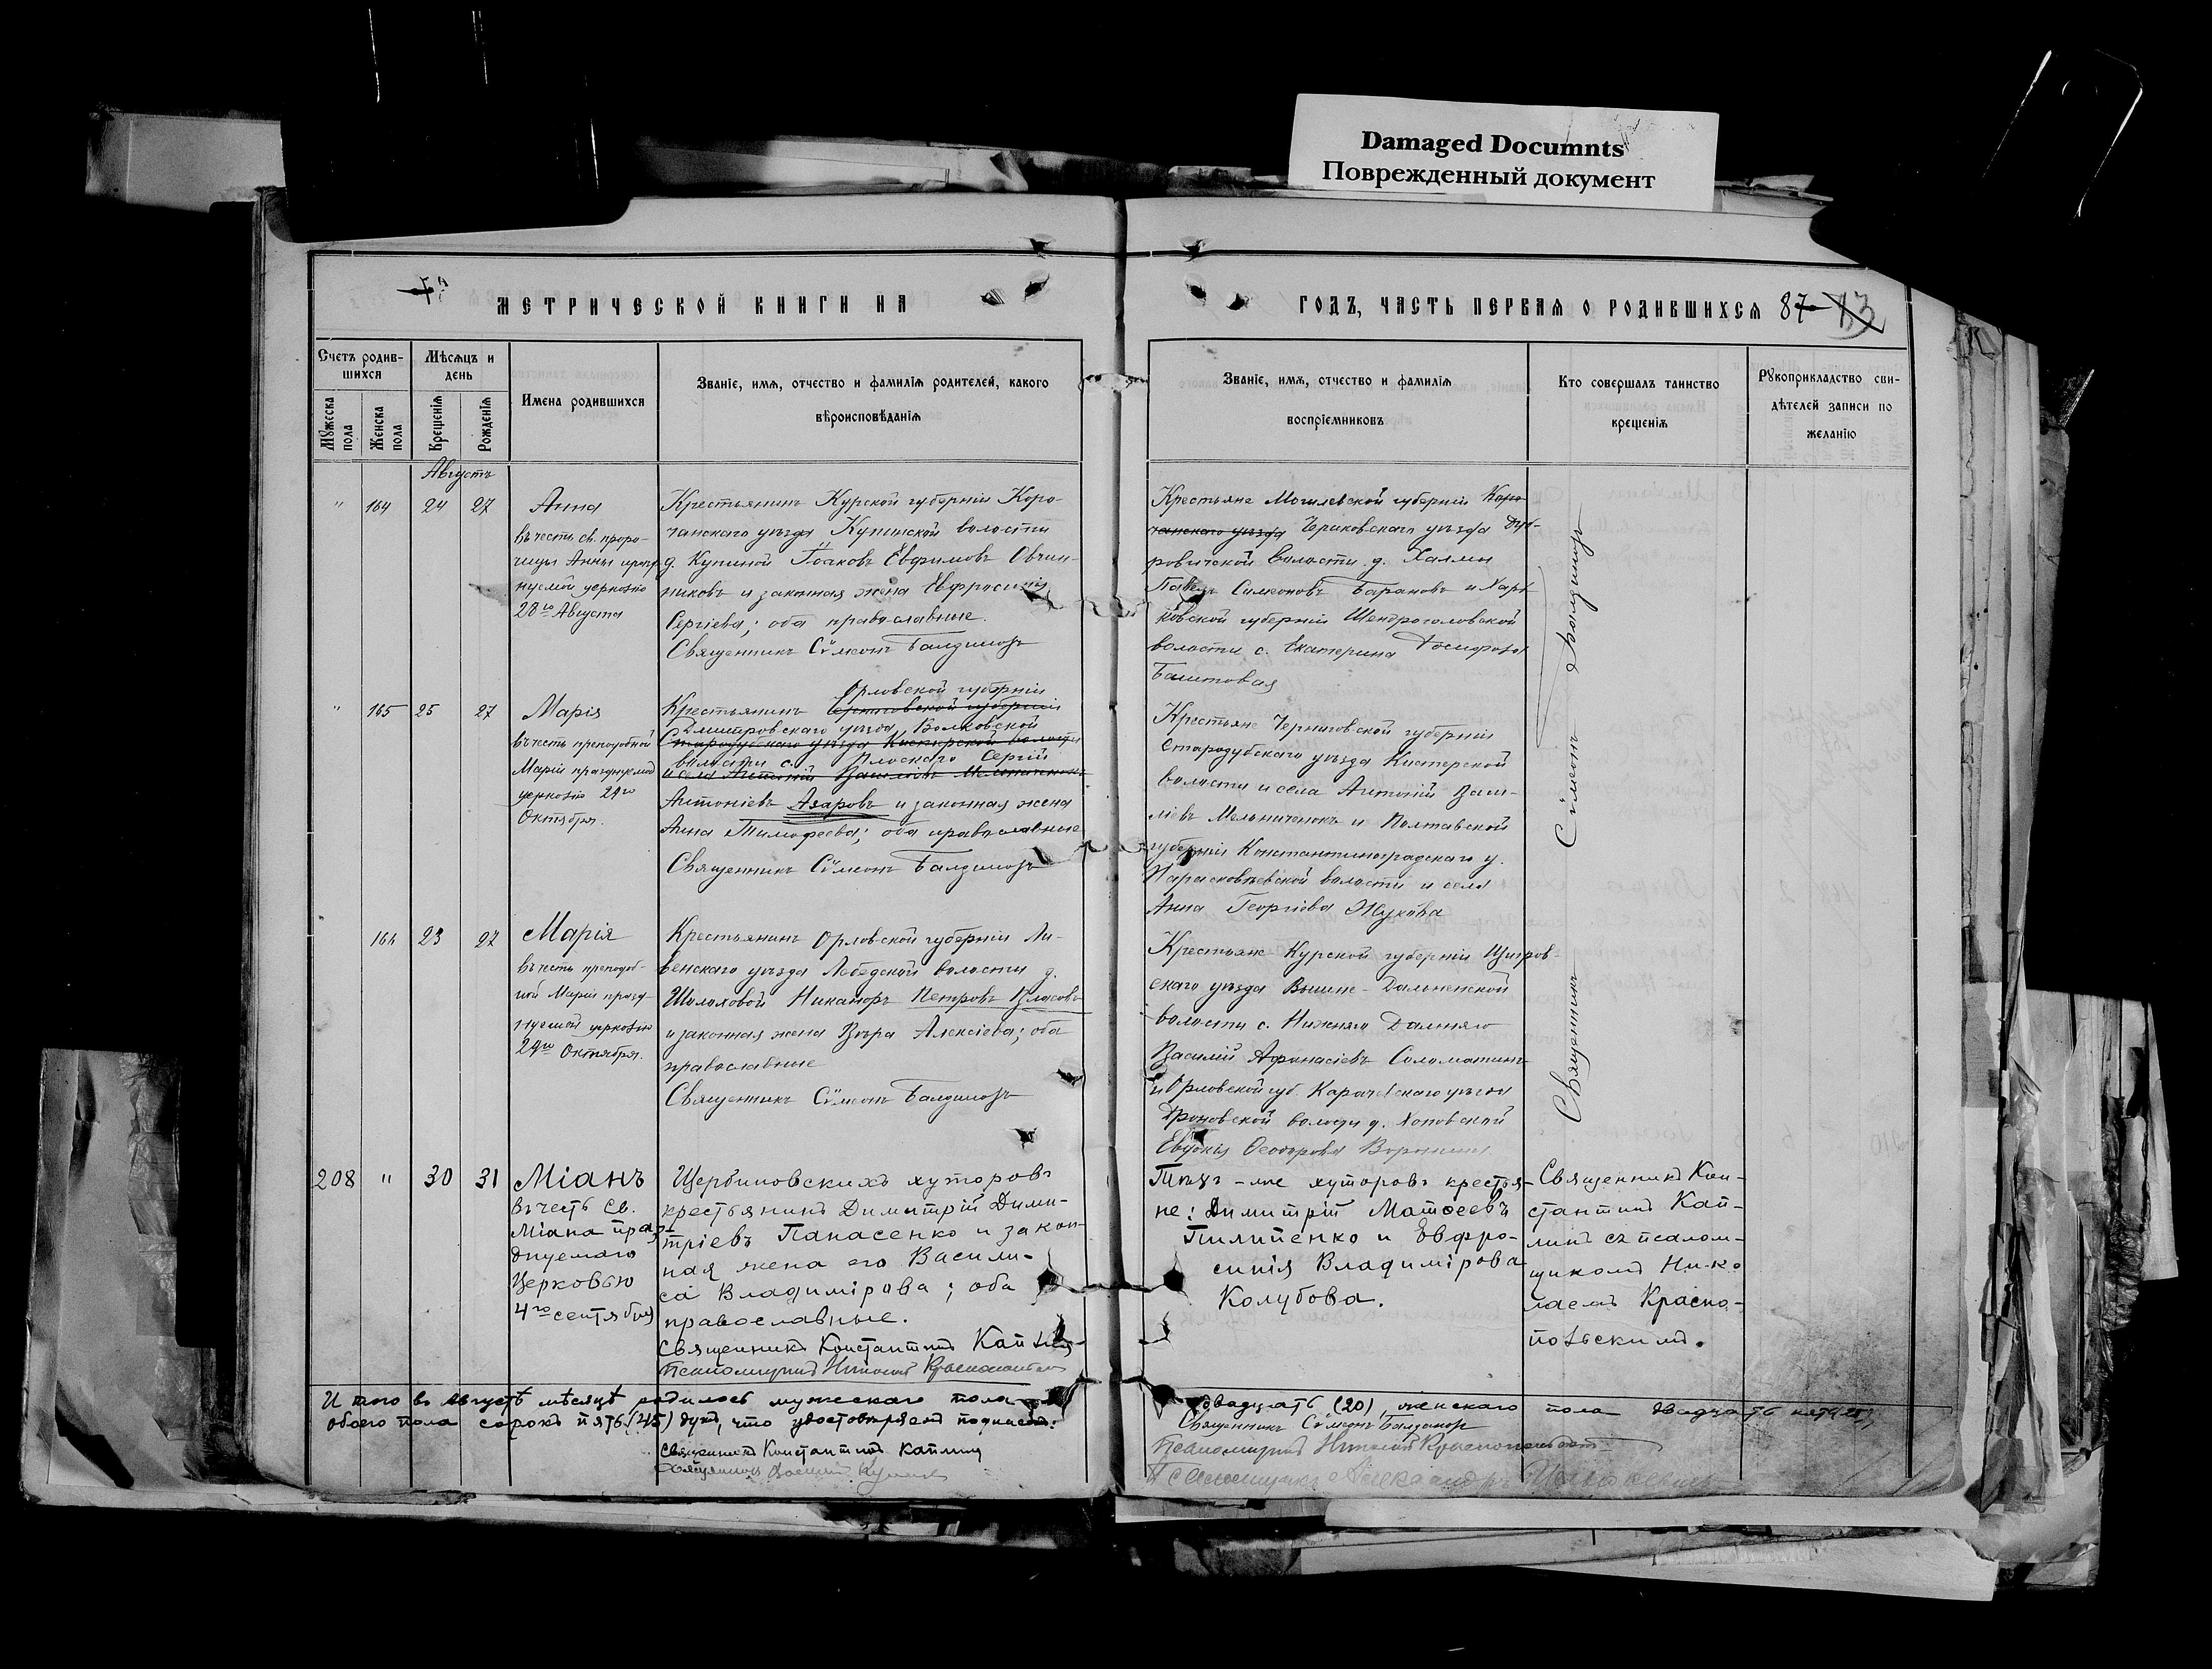 Damaged Documnts
Поврежденный документ
МЕТРИЧЕСКОЙ КНИГИ НА
ГОДЪ, ЧАСТЬ ПЕРВАЯ О РОДИВШИХСЯ 87 83
Счетъ родив-
шихся
Мужеска пола
Женска пола
Мѣсяцъ и
день
Крещенія
Рожденія
Имена родившихся
Званіе, имя, отчество и фамилія родителей, какого
вѣроисповѣданія
Званіе, имя, отчество и фамилія
воспріемниковъ
Кто совершалъ таинство
крещенія
Рукоприкладство сви-
дѣтелей записи по
желанію
Августъ
" 164 24 27
Анна
въ честь св. проро-
чицы Анны
нуемой церковію
28го Августа
Крестьянинъ Курской губерніи Коро-
чанскаго уѣзда Купинской волости
д. Купиной Іоаковъ Евфимовъ Овчин-
никовъ и законная жена Евфросинія
Сергіева; оба православные.
Священникъ Сѵмеонъ Балдиморъ
Крестьяне Могилевской губерніи Коро-
чанскаго уѣзда Чериковскаго уѣзда
ровичской волости д.
Павелъ Симеоновъ Барановъ и Харь-
ковской губерніи
волости с. Екатерина
Баштовая
" 165 25 27
Марія
въ честь преподобной
Маріи празднуемой
церковію 29го
Октября.
Орловской губерніи
Крестьянинъ Черниговской губерніи
Дмитровскаго уѣзда, Волковской
Стародубскаго уѣзда Кистерской волости
волости с. Плоскаго Сергій
и села Антоній Василіевъ Мельниченокъ
Антоніевъ Азаровъ и законная жена
Анна Тимофеева; оба православные
Священникъ Сѵмеонъ Балдиморъ
Крестьяне Черниговской губерніи
Стародубскаго уѣзда Кистерской
волости и села Антоній Васи-
ліевъ Мельниченокъ и Полтавской
губерніи Константиноградскаго у.
Парасковѣевской волости и села
Анна Георгіева Жукова
166 23 27
Марія
въ честь преподоб-
ной Маріи празд-
нуемой церковію
29го Октября.
Крестьянинъ Орловской губерніи Ли-
венскаго уѣзда Лебедской волости д.
Шолоховой Никаноръ Петровъ Власовъ
и законная жена Вѣра Алексіева; оба
православные
Священникъ Сѵмеонъ Балдиморъ
Крестьяне Курской губерніи Щигров-
скаго уѣзда Вышне-Дальненской
волости с. Нижняго Далняго
Василій Афанасіевъ Соломатинъ
и Орловской губ. Карачевскаго уѣзда
Дроновской волости д.
Евдокія Ѳеодорова
Священникъ Сѵмеонъ Балдиморъ
208 " 30 31
Міанъ
въ честь св.
Міана праз-
днуемаго
Церковью
4го сентября
Щербиновскихъ хуторовъ
крестьянинъ Димитрій Дими-
тріевъ Панасенко и закон-
ная жена его Васили-
са Владимірова; оба
православные.
Священникъ Константинъ Каплинъ
Псаломщикъ Николай Краснопольскій
Тѣхъ-же хуторовъ крестья-
не: Димитрій Матѳеевъ
Пилипенко и Евфро-
синія Владимірова
Колубова.
Священникъ Кон-
стантинъ Кап-
линъ съ псалом-
щикомъ Нико-
лаемъ Красно-
польскимъ.
И того въ Августѣ мѣсяцѣ родилось мужескаго пола двадцать (20), женскаго пола двадцать пять (25),
обоего пола сорокъ пять (45) душъ, что удостовѣряемъ подписью:
Священникъ Сѵмеонъ Балдиморъ
Священникъ Константинъ Каплинъ
Псаломщикъ Николай Краснопольскій
Священникъ Василій
Псаломщикъ Александръ